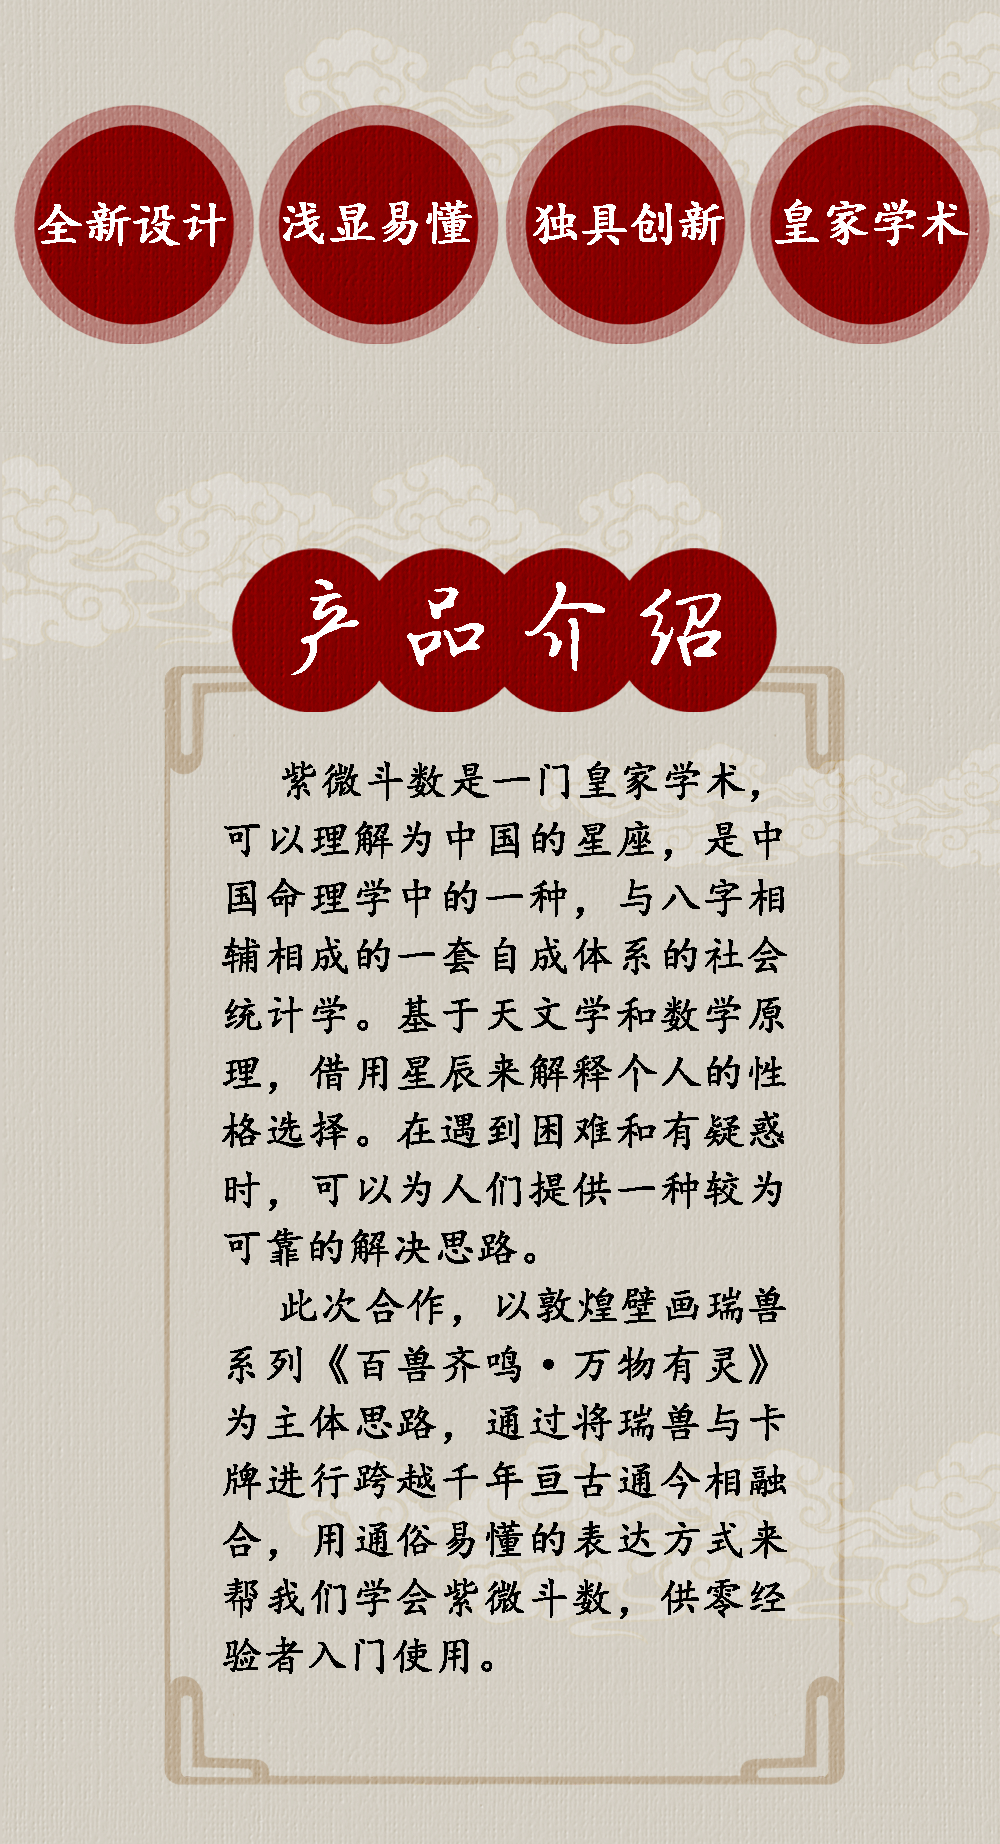 全新设计
浅显易懂
独具创新
皇家学术
产品介绍
紫微斗数是一门皇家学术，
可以理解为中国的星座，是中
国命理学中的一种，与八字相
辅相成的一套自成体系的社会
统计学。基于天文学和数学原
理，借用星辰来解释个人的性
格选择。在遇到困难和有疑惑
时，可以为人们提供一种较为
可靠的解决思路。
此次合作，以敦煌壁画瑞兽
系列《百兽齐鸣·万物有灵》
为主体思路，通过将瑞兽与卡
牌进行跨越千年亘古通今相融
合，用通俗易懂的表达方式来
帮我们学会紫微斗数，供零经
验者入门使用。